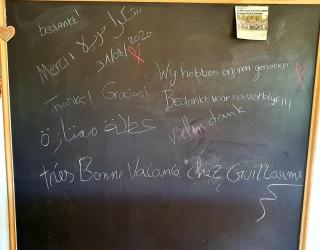 bedankt!
شكرا جزيلا
Merci!
31/08/2020
Wij hebben enorm genoten
Thanks! Gracias!
Bedankt voor het verblijf!!!
عطلة ممتازة
vielen dank
très Bonne Vacance chez Guillaume